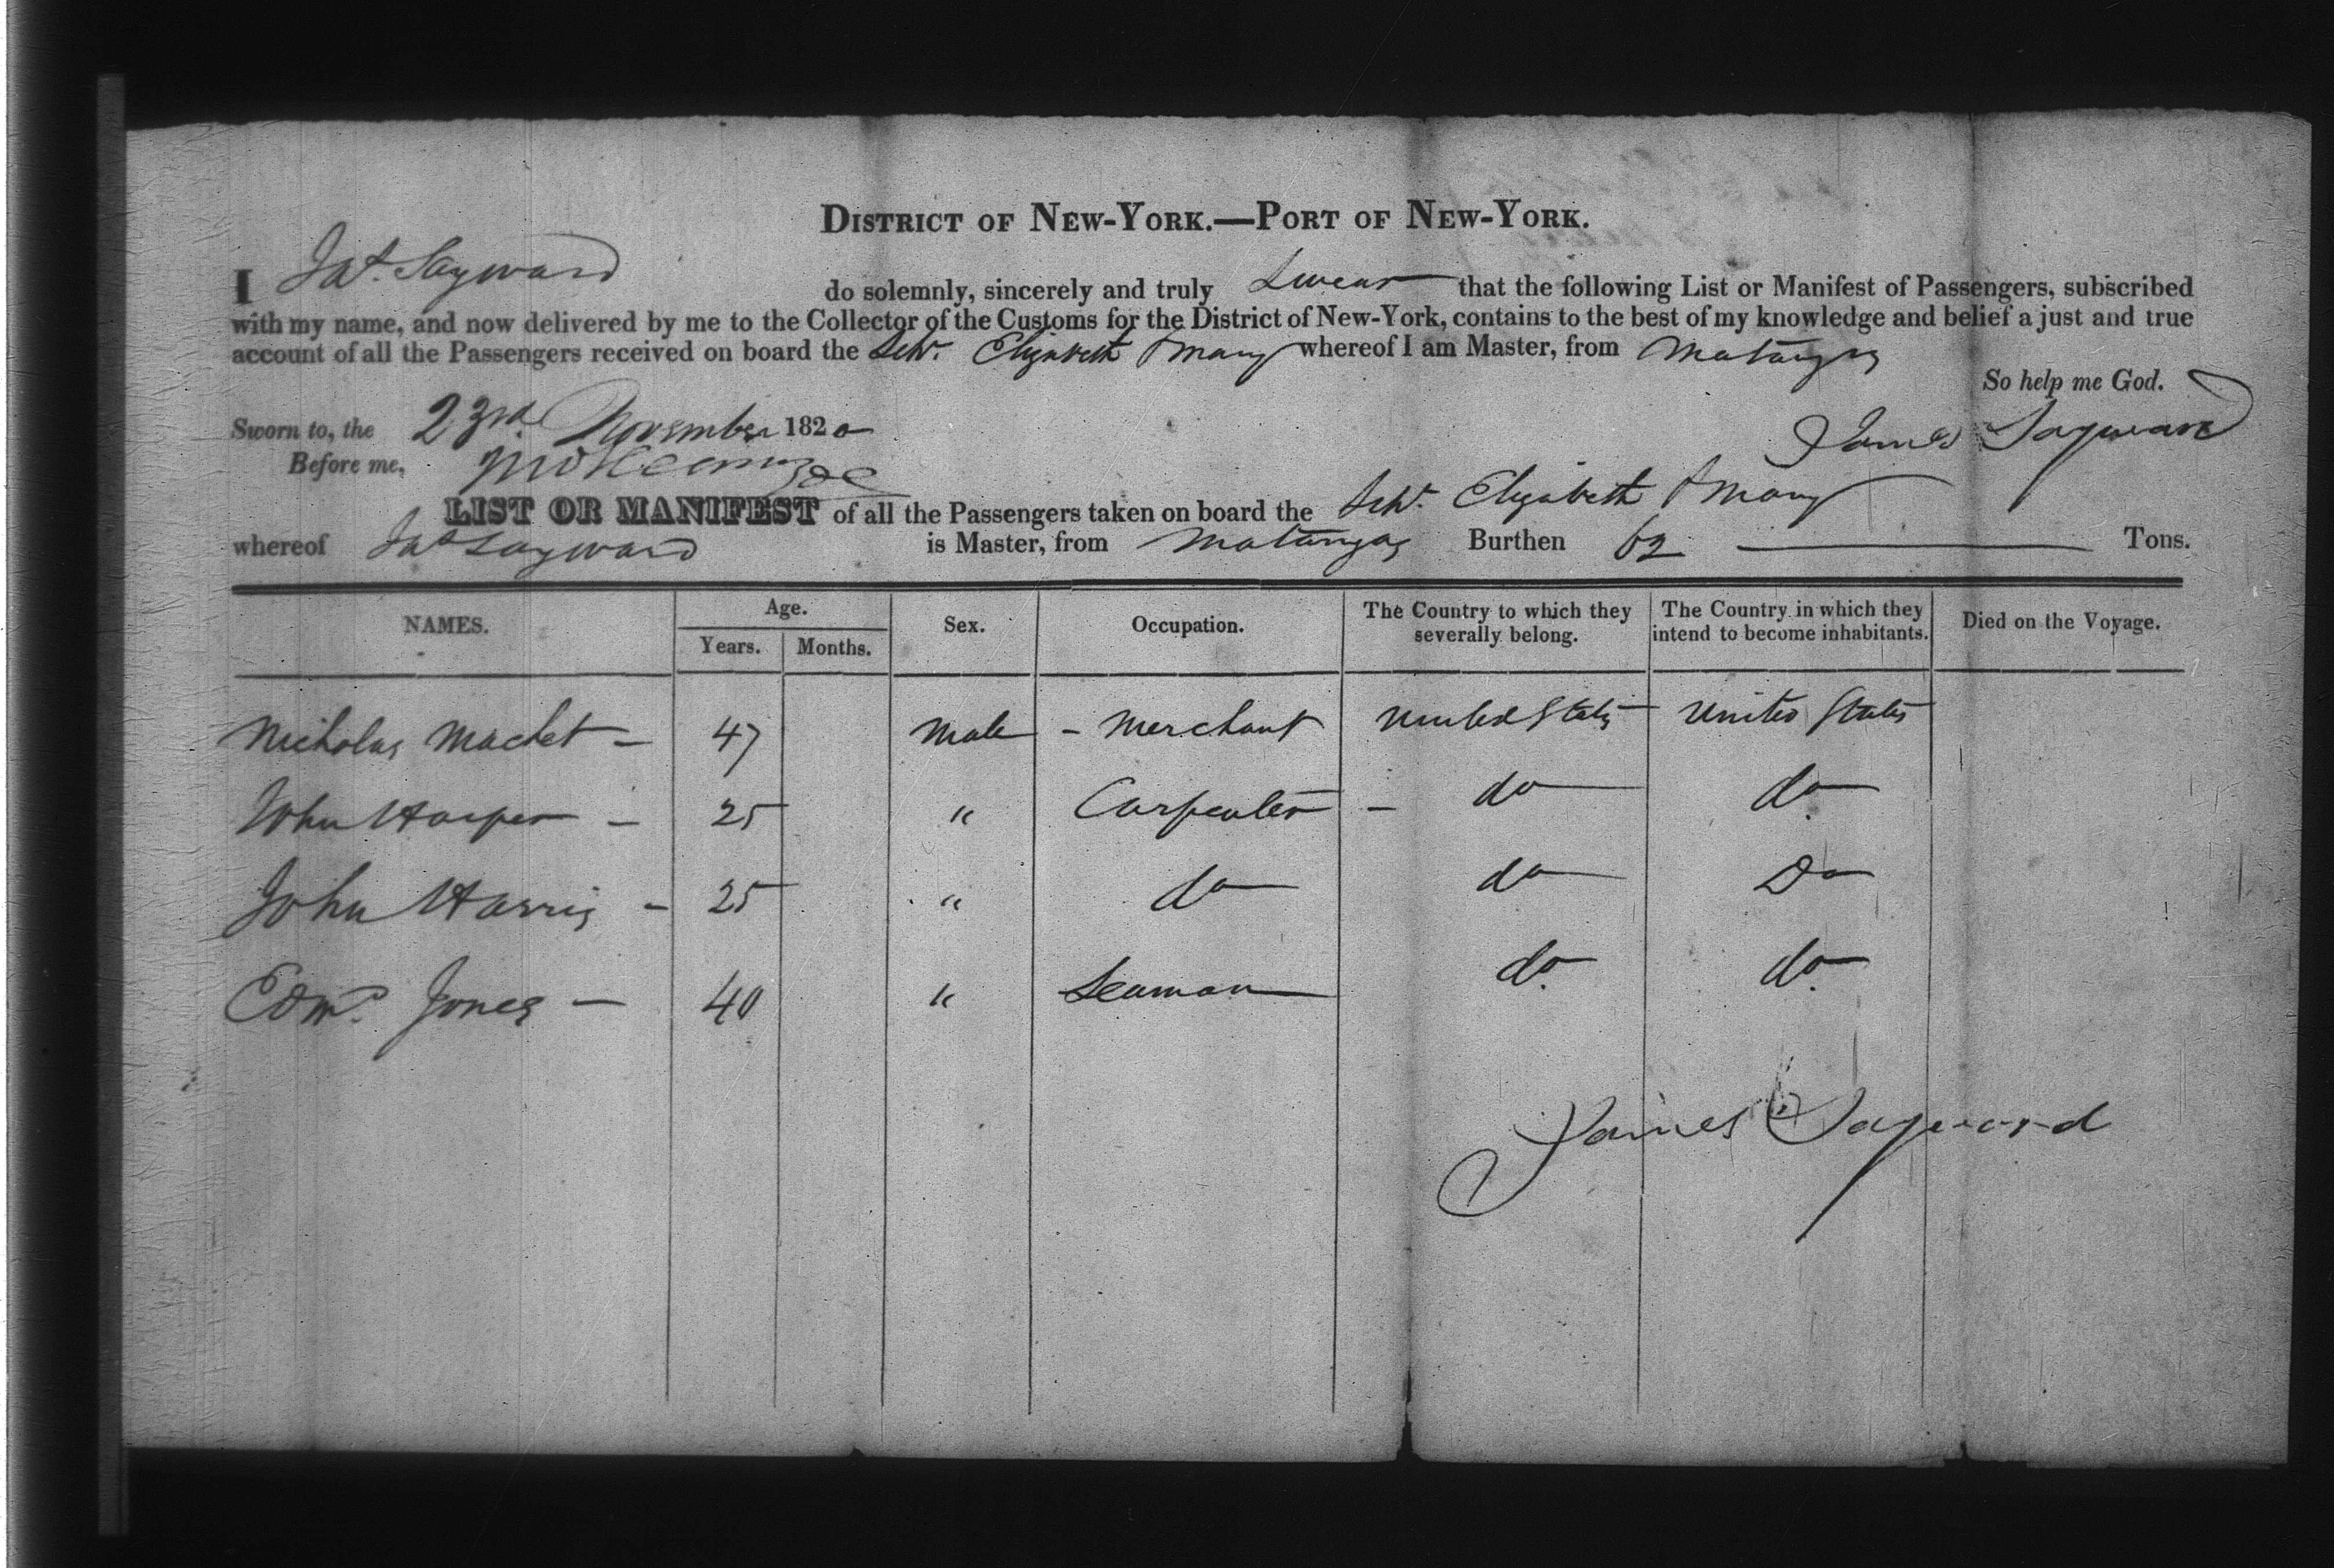 DISTRICT OF NEW-YORK.—PORT OF NEW-YORK.
I Jas. Sayward do solemnly, sincerely and truly Swear that the following List or Manifest of Passengers, subscribed
with my name, and now delivered by me to the Collector of the Customs for the District of New-York, contains to the best of my knowledge and belief a just and true
account of all the Passengers received on board the Schr. Elizabeth & Mary whereof I am Master, from Matanzas
So help me God.
Sworn to, the 23rd November 1820
James Sayward
Before me,
LIST OR MANIFEST of all the Passengers taken on board the Schr. Elizabeth & Mary
whereof Jas Sayward is Master, from Matanzas Burthen 62 Tons.
NAMES. Age. Years. Months. Sex. Occupation. The Country to which they severally belong. The Country in which they intend to become inhabitants. Died on the Voyage.
Nicholas Machet – 47 Male – Merchant United States United States
John Harper – 25 " Carpenter – do do
John Harris – 25 " do do Do
Edmd. Jones – 40 " Seaman do. do.
James Sayward